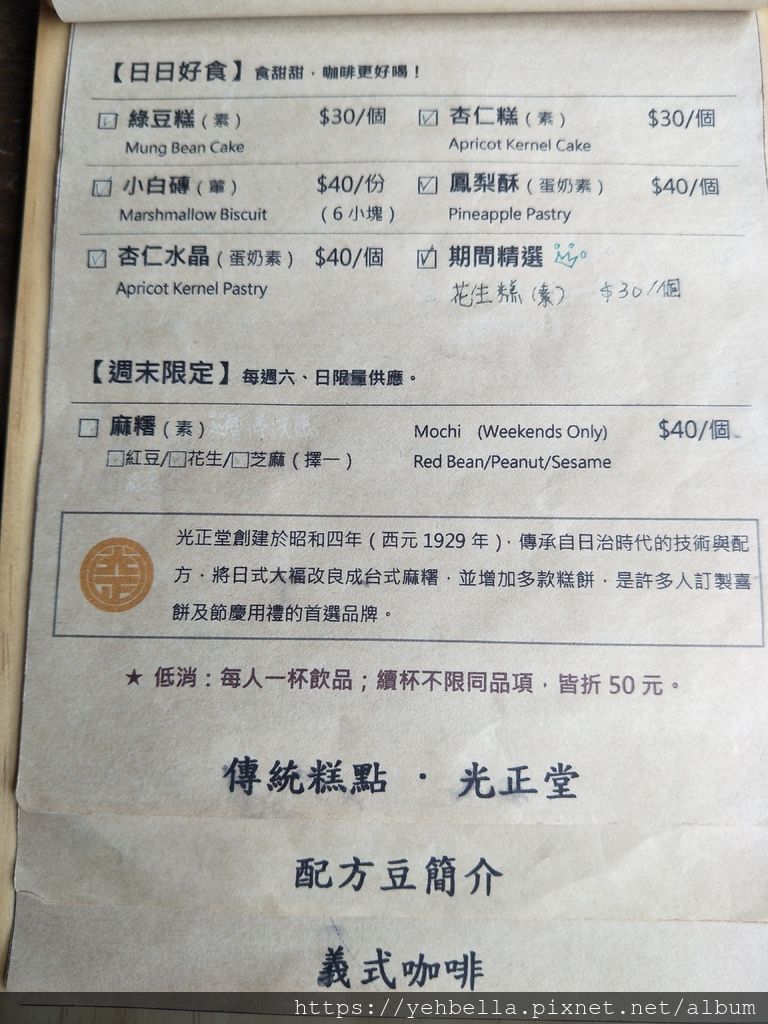 【日日好食】食甜甜，咖啡更好喝！
☑ 綠豆糕（素） $30/個 ☑ 杏仁糕（素） $30/個
Mung Bean Cake Apricot Kernel Cake
☑ 小白磚（葷） $40/份 ☑ 鳳梨酥（蛋奶素） $40/個
Marshmallow Biscuit （6 小塊） Pineapple Pastry
☑ 杏仁水晶（蛋奶素） $40/個 ☑ 期間精選
Apricot Kernel Pastry 花生糕（素） $30/個
【週末限定】每週六、日限量供應。
☐ 麻糬（素） Mochi (Weekends Only) $40/個
☐紅豆/☐花生/☐芝麻（擇一） Red Bean/Peanut/Sesame
光正堂創建於昭和四年（西元 1929 年），傳承自日治時代的技術與配
方，將日式大福改良成台式麻糬，並增加多款糕餅，是許多人訂製喜
餅及節慶用禮的首選品牌。
★ 低消：每人一杯飲品；續杯不限同品項，皆折 50 元。
傳統糕點 · 光正堂
配方豆簡介
義式咖啡
https://yehbella.pixnet.net/album